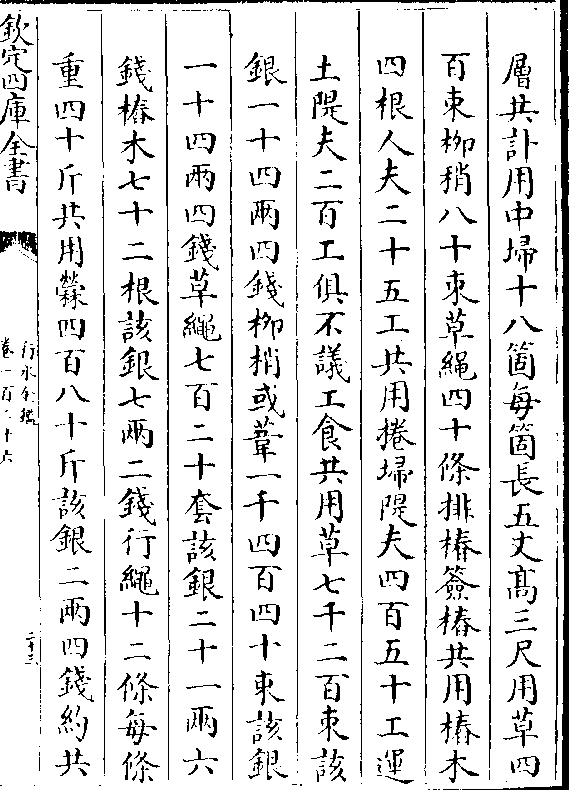 層共計用中埽十八箇每箇長五丈高三尺用草四
百束柳稍八十束草繩四十條排樁簽樁共用樁木
四根人夫二十五工共用捲埽隄夫四百五十工運
土隄夫二百工俱不議工食共用草七千二百束該
銀一十四兩四錢柳梢或葦一千四百四十束該銀
一十四兩四錢草繩七百二十套該銀二十一兩六
錢樁木七十二根該銀七兩二錢行繩十二條每條
重四十斤共用檾四百八十斤該銀二兩四錢約共
欽定四庫全書
行水金鑑
卷一百二十六
二十三